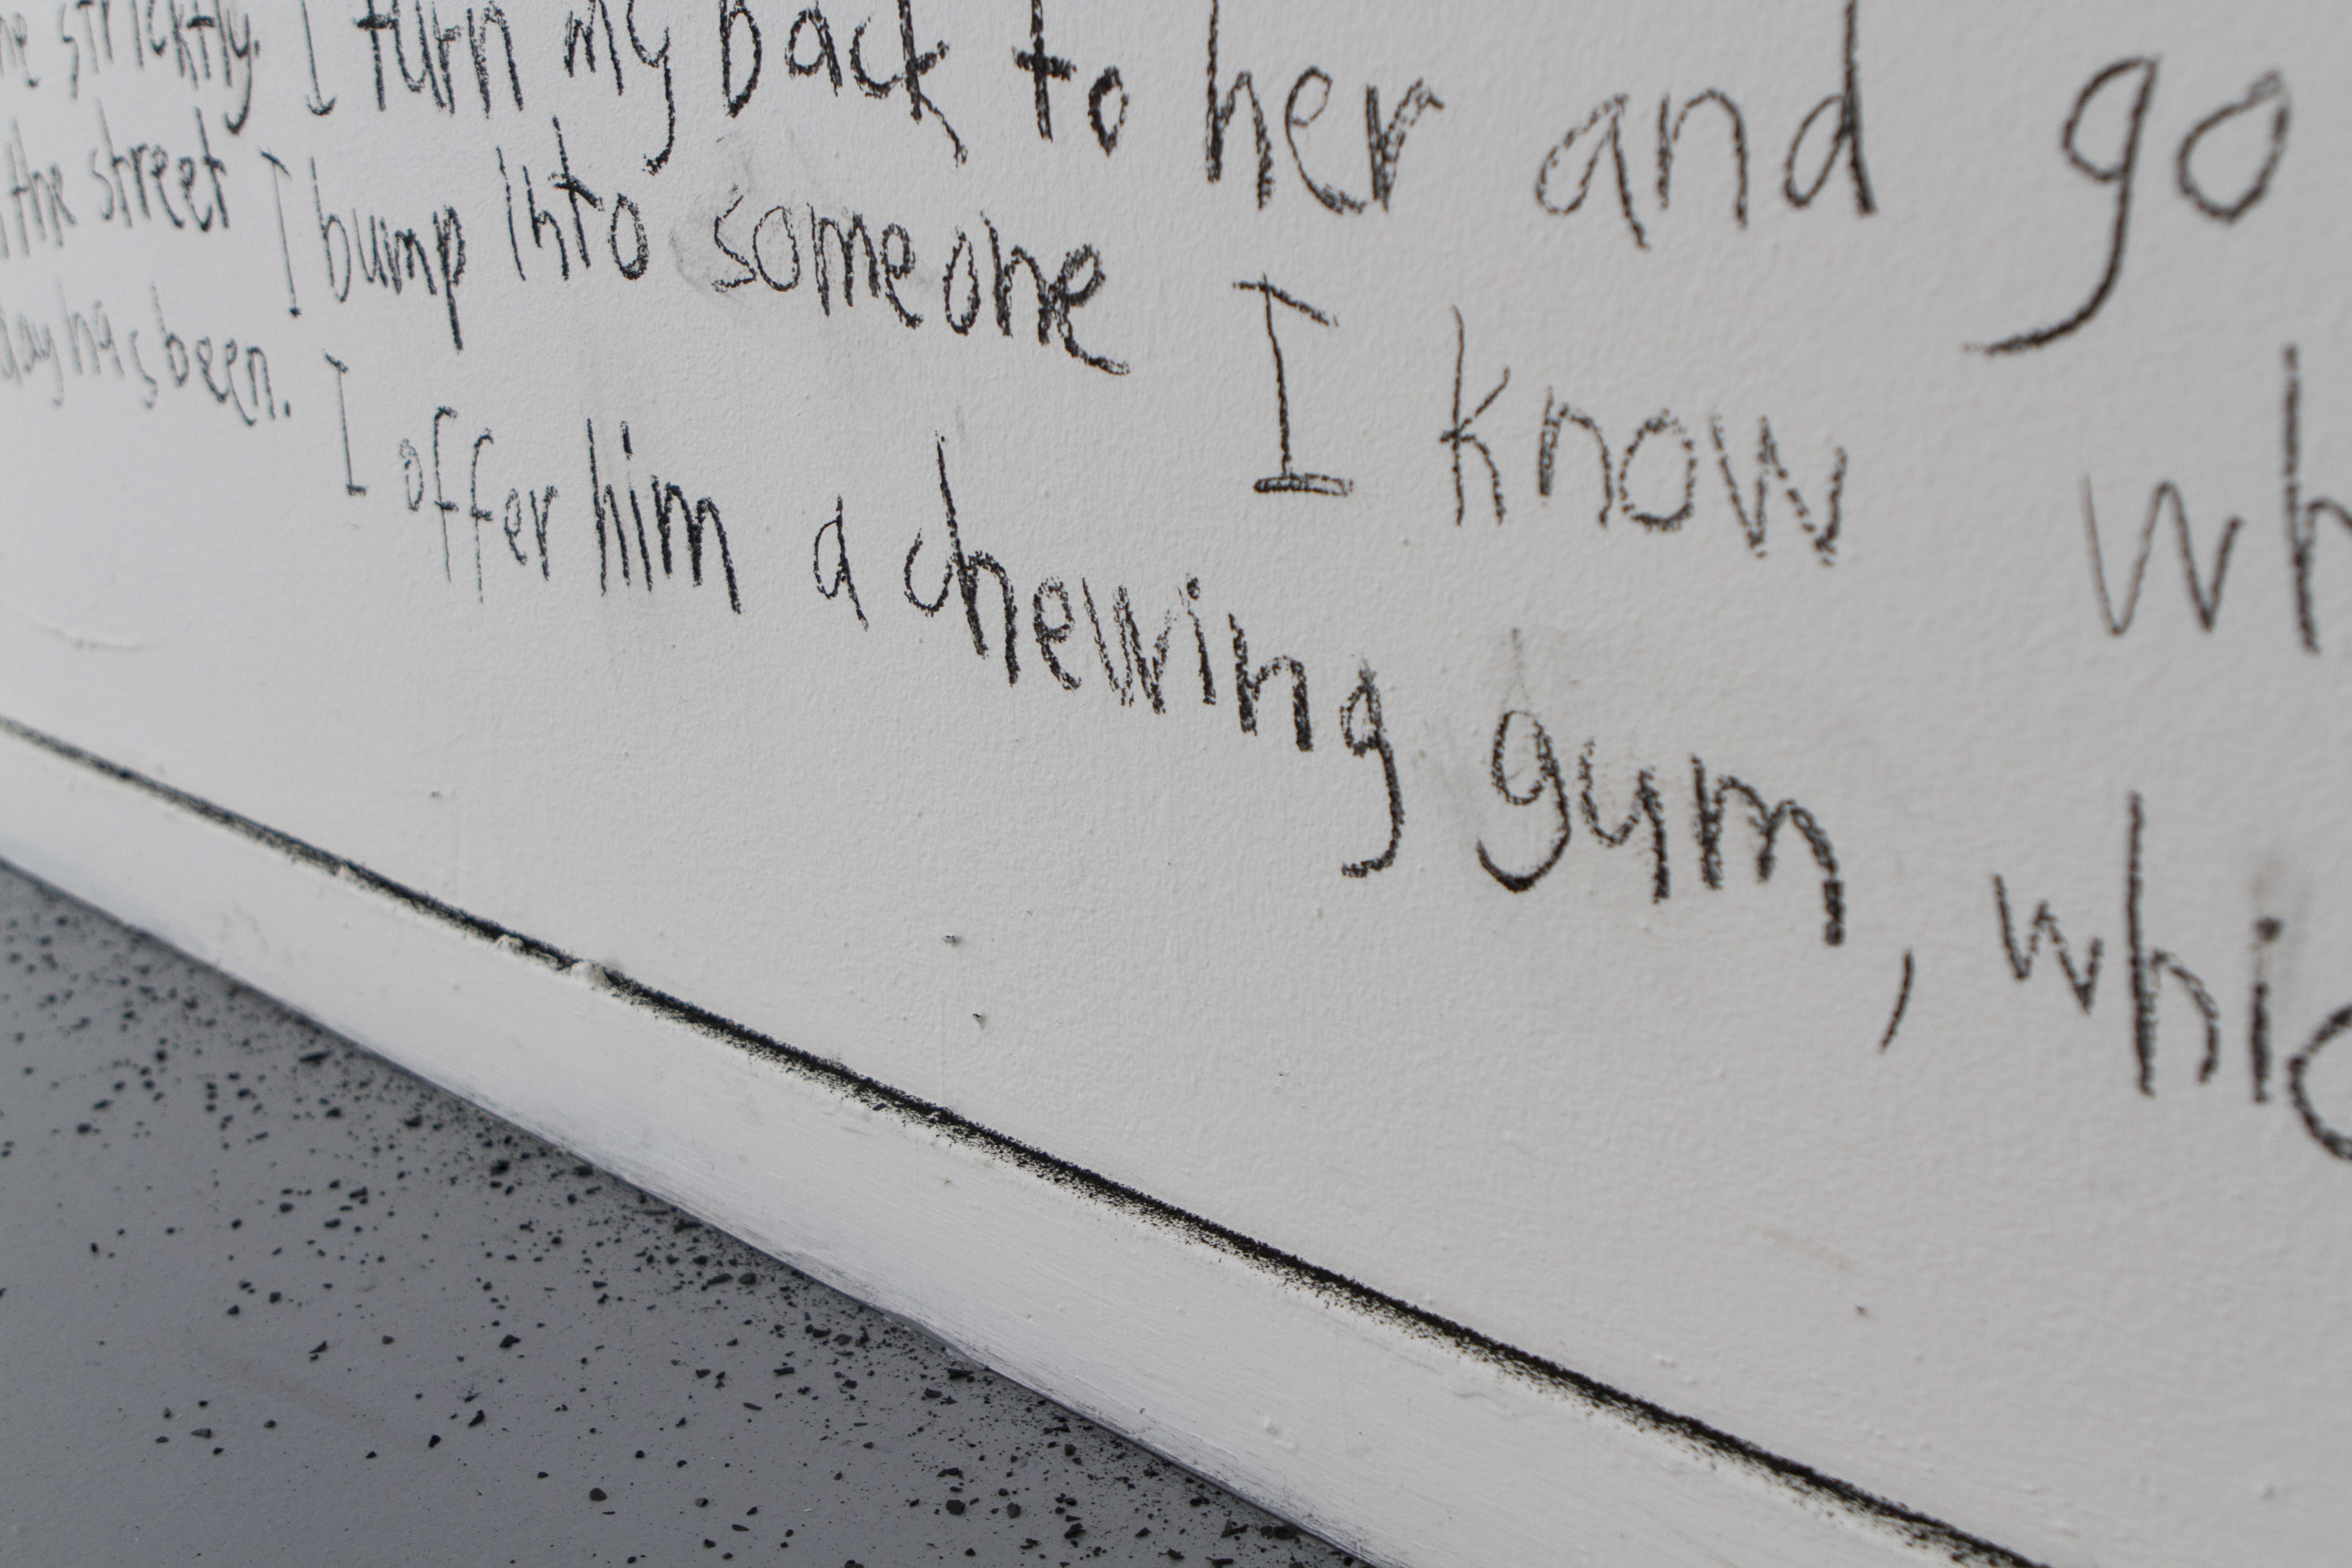 strickly. I turn my back to her and go
the street I bump into someone I know
day has been. I offer him a chewing gum,